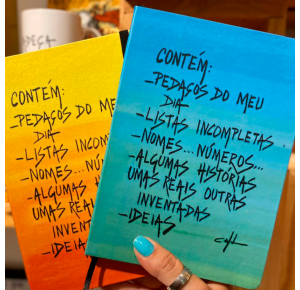 CONTÉM:
-PEDAÇOS DO MEU
DIA
-LISTAS INCOMPL
-NOMES...NÚM
-ALGUMAS H
UMAS REAI
INVENT
-IDEIAS
CONTÉM:
-PEDAÇOS DO MEU
DIA
-LISTAS INCOMPLETAS
-NOMES...NÚMEROS...
-ALGUMAS HISTÓRIAS
UMAS REAIS OUTRAS
INVENTADAS
-IDEIAS